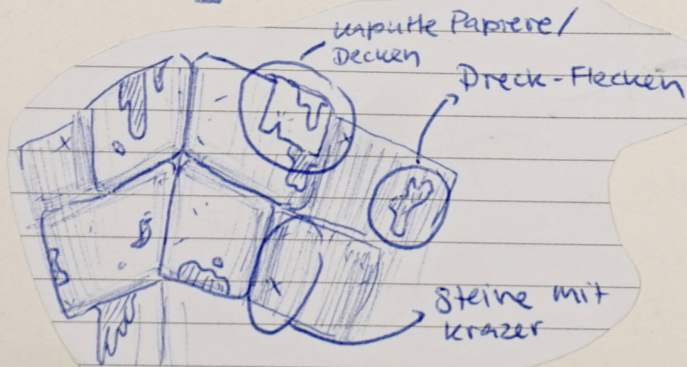 kaputte Papiere/
Decken
Dreck-Flecken
Steine mit
krazer